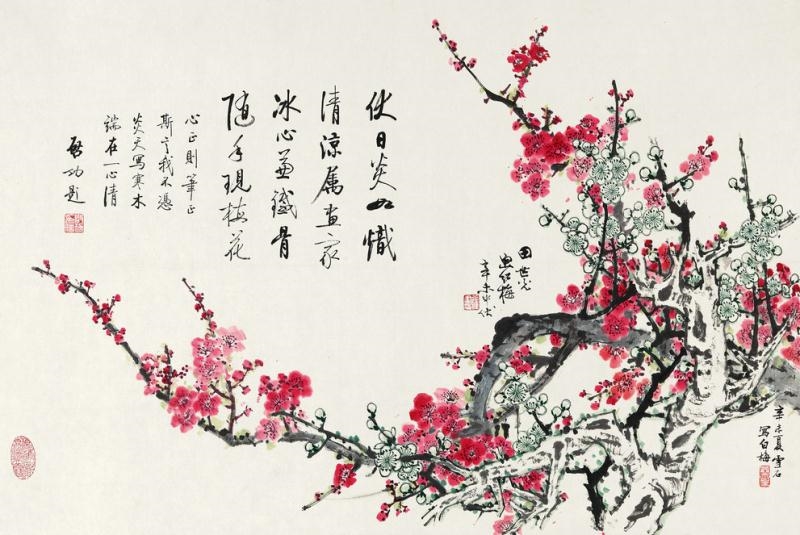 伏日炎如熾
清涼屬畫家
冰心兼鐵骨
隨手現梅花
心正則筆正
斯言我不憑
炎天寫寒木
端在一心清
啟功題
田世光
画红梅
辛未中伏
辛未夏雪石
寫白梅